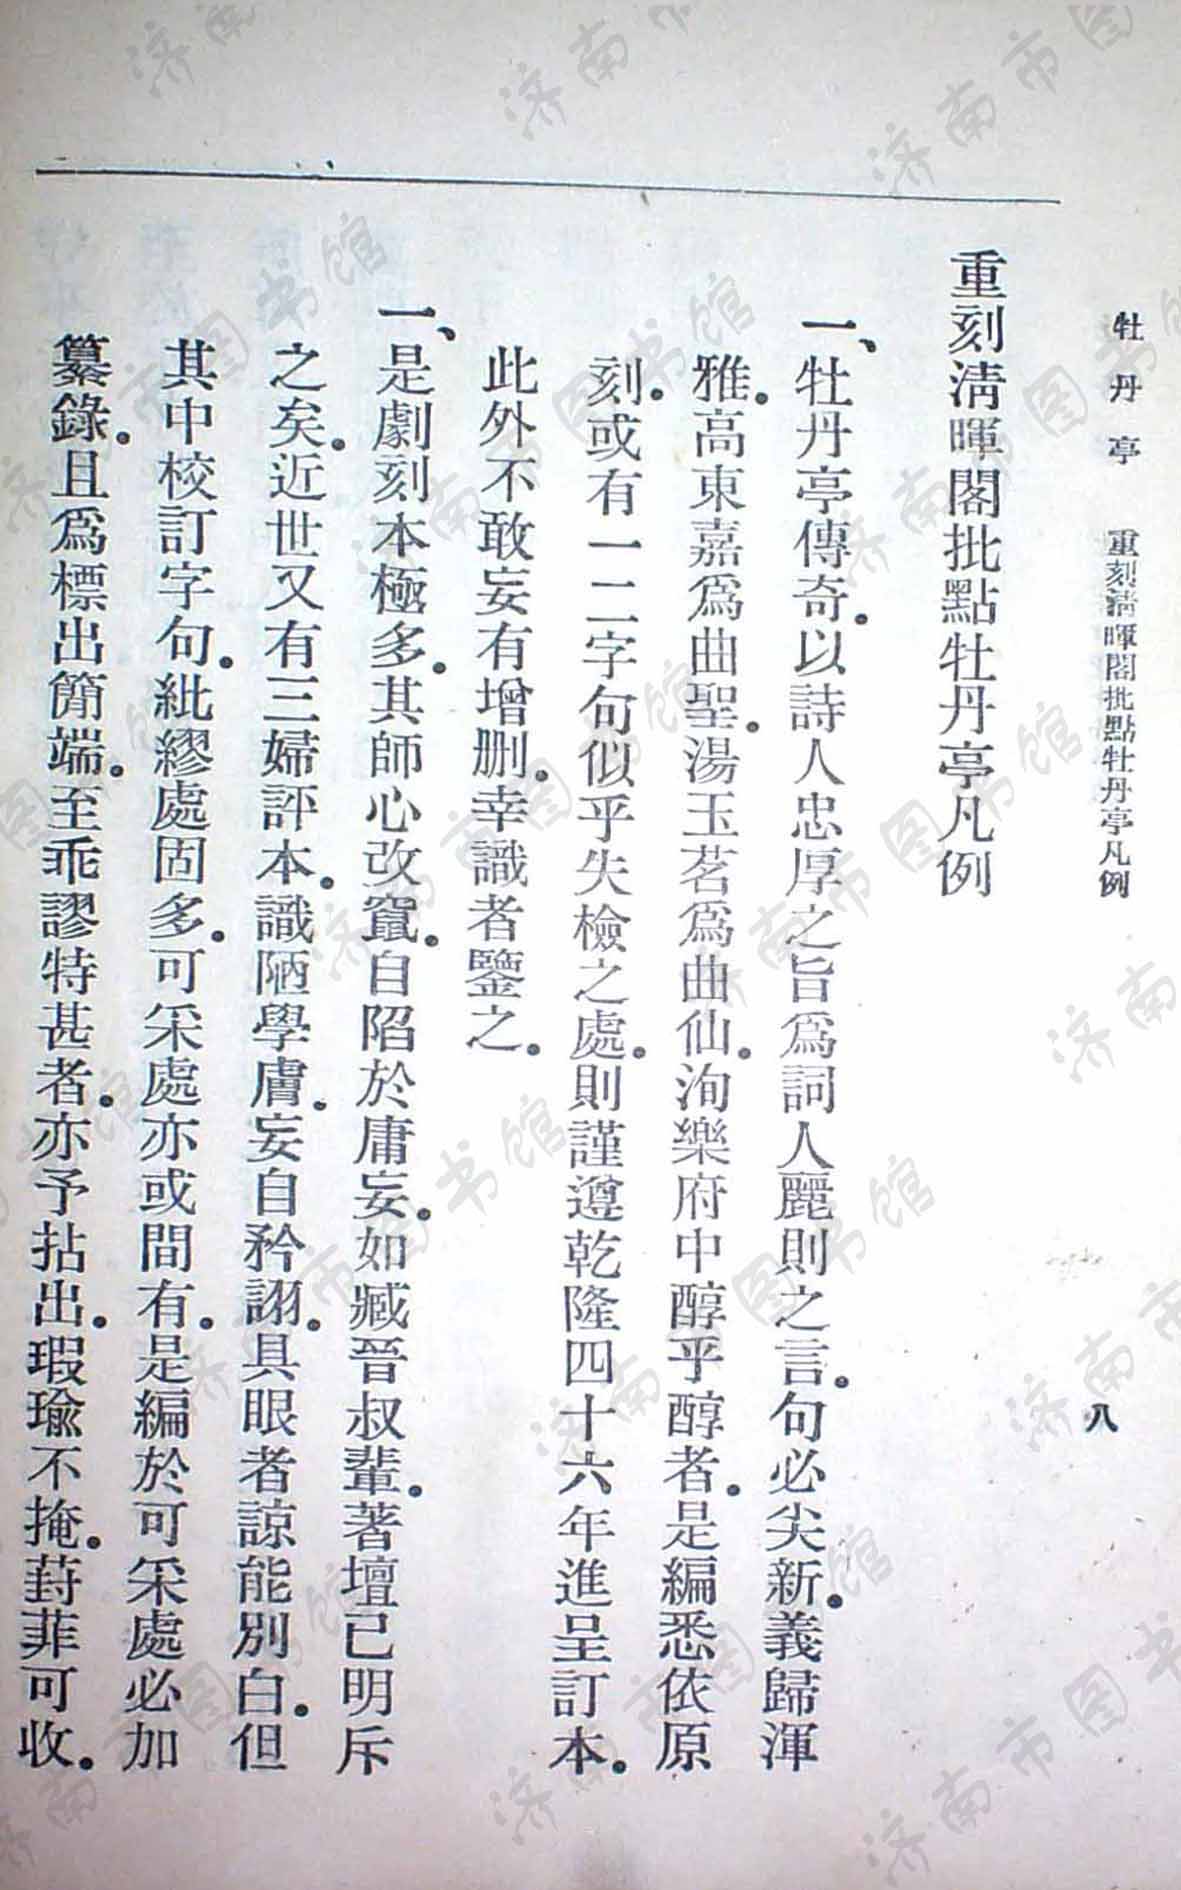 牡丹亭　重刻清暉閣批點牡丹亭凡例　八
重刻清暉閣批點牡丹亭凡例
一、牡丹亭傳奇。以詩人忠厚之旨爲詞人麗則之言。句必尖新。義歸渾
雅。高東嘉爲曲聖。湯玉茗爲曲仙。洵樂府中醇乎醇者。是編悉依原
刻。或有一二字句似乎失檢之處。則謹遵乾隆四十六年進呈訂本。
此外不敢妄有增删。幸識者鑒之。
一、是劇刻本極多。其師心改竄。自陷於庸妄。如臧晉叔輩。著壇已明斥
之矣。近世又有三婦評本。識陋學膚。妄自矜詡。具眼者諒能別白。但
其中校訂字句。紕繆處固多。可采處亦或間有。是編於可采處必加
纂錄。且爲標出簡端。至乖謬特甚者。亦予拈出。瑕瑜不掩。葑菲可收。
济南市图书馆